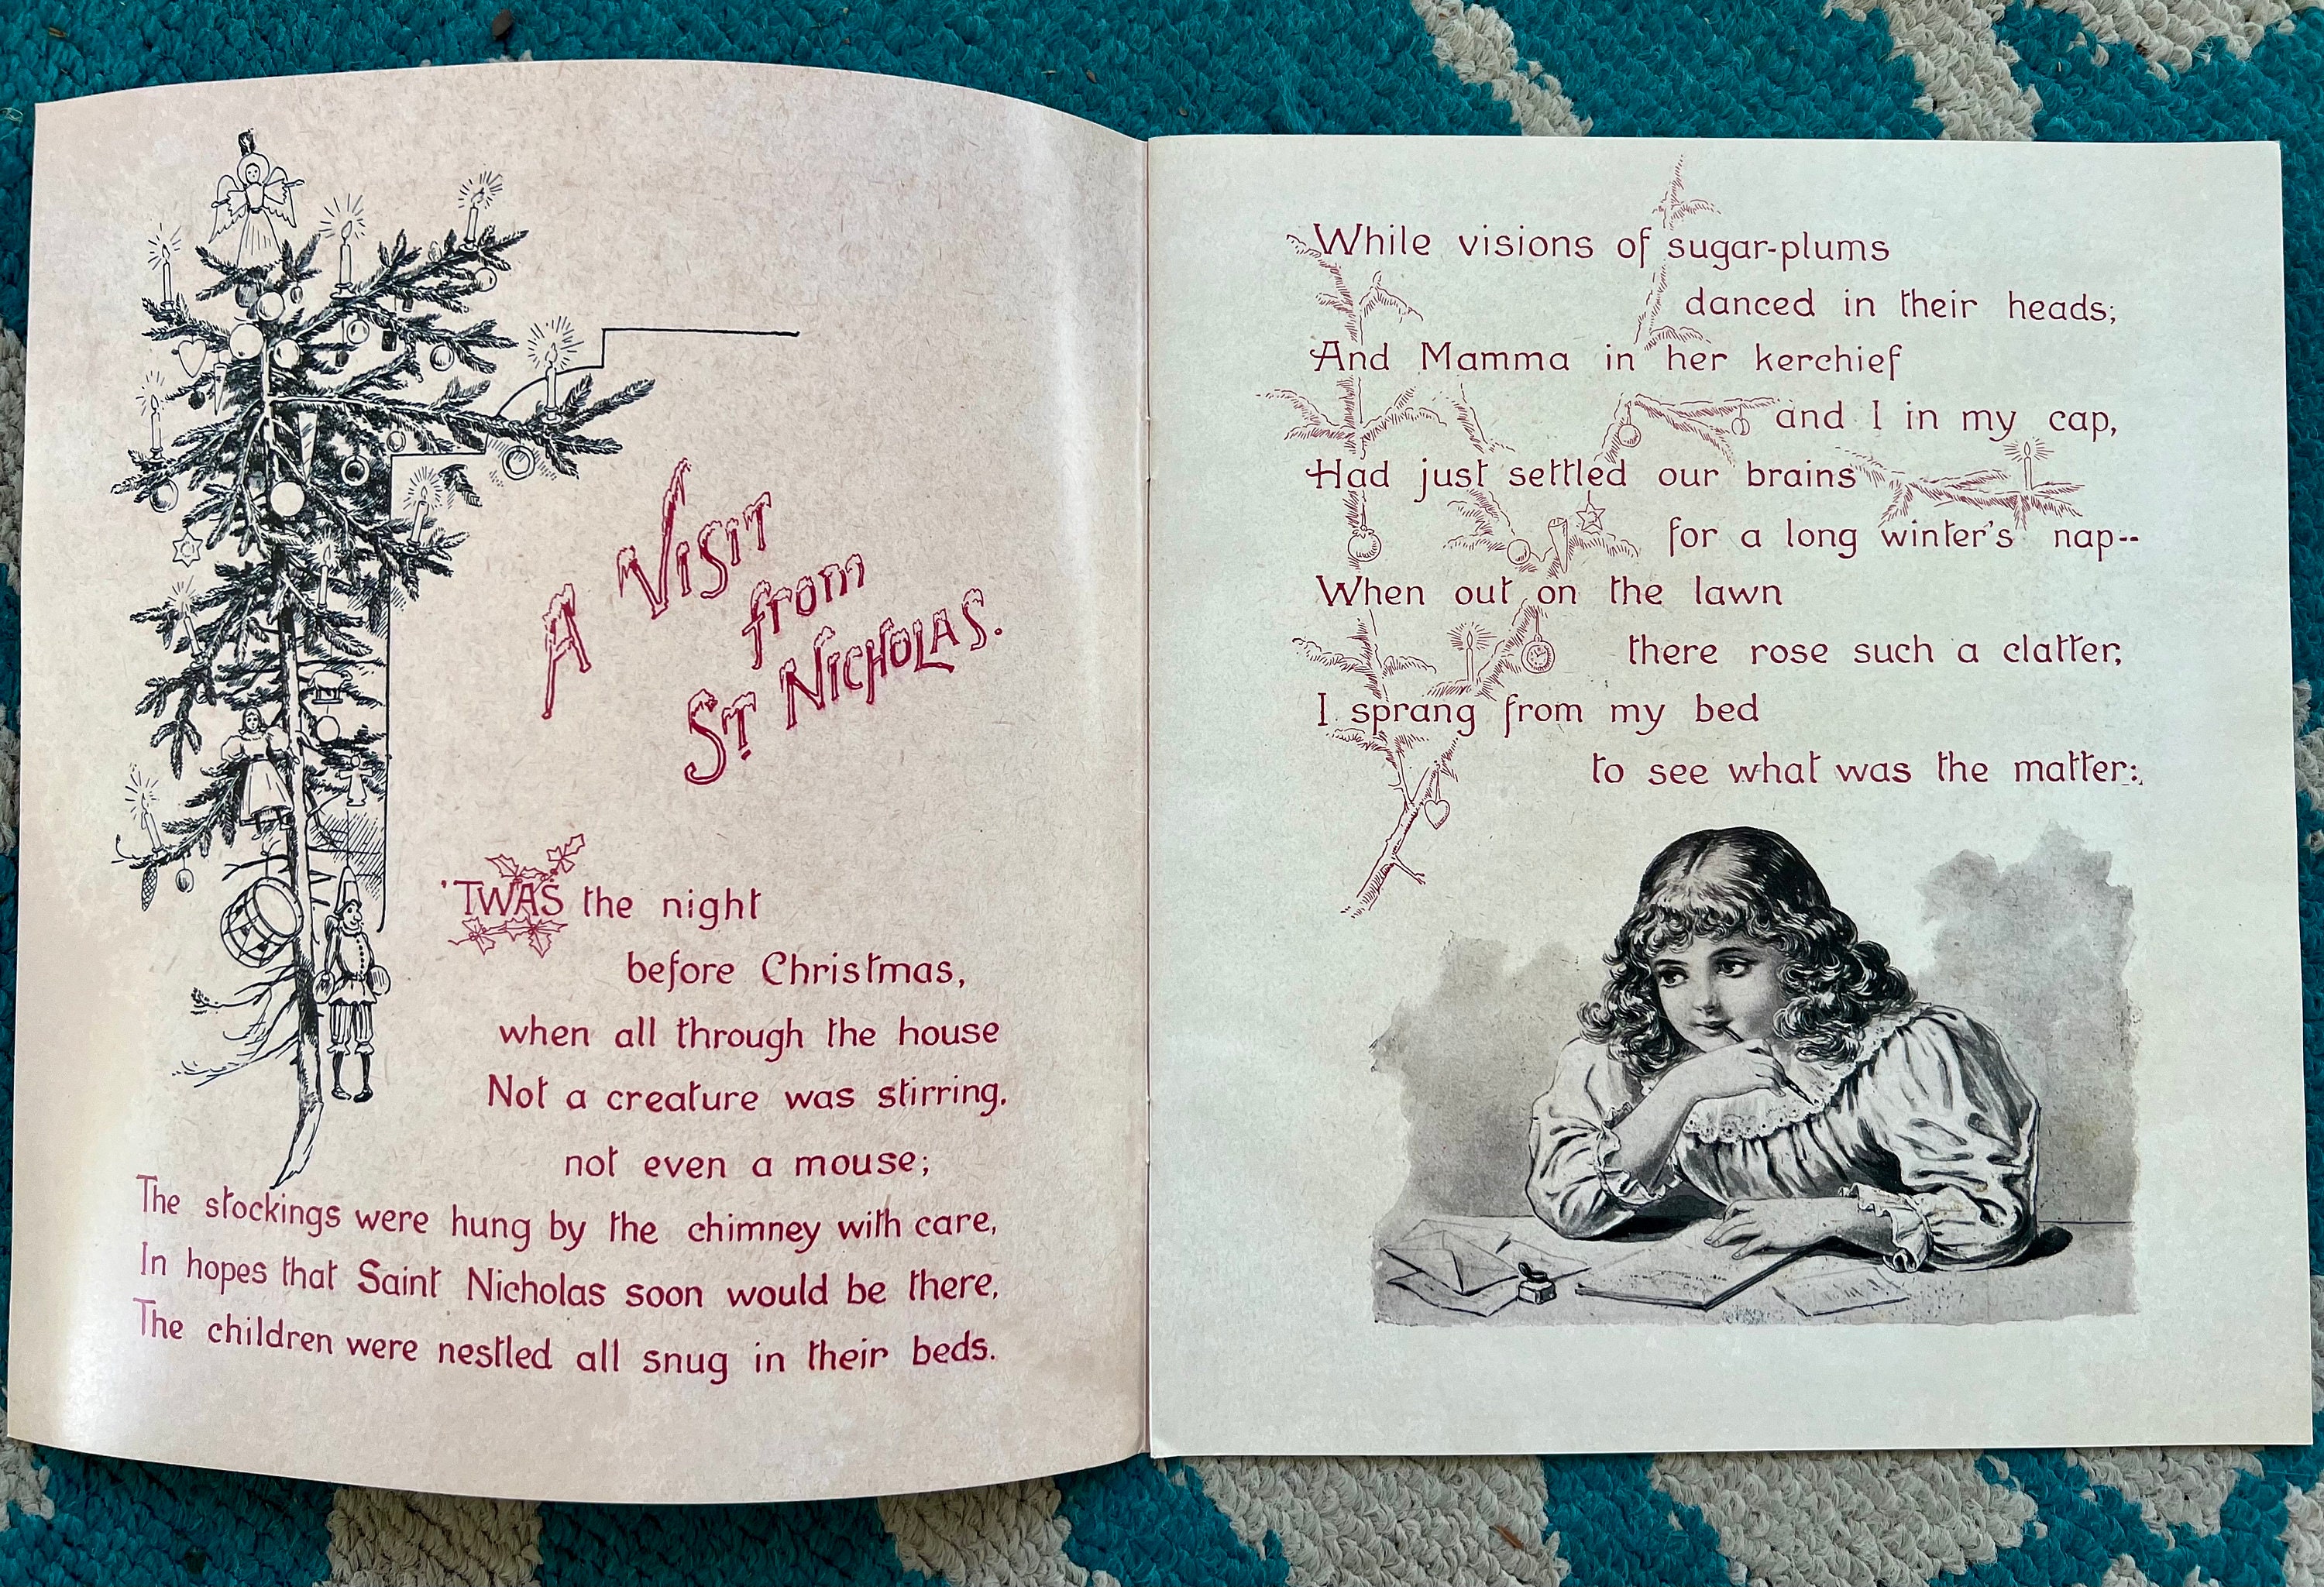 A Visit
from
St. Nicholas.
'Twas the night
before Christmas,
when all through the house
Not a creature was stirring,
not even a mouse;
The stockings were hung by the chimney with care,
In hopes that Saint Nicholas soon would be there,
The children were nestled all snug in their beds.
While visions of sugar-plums
danced in their heads;
And Mamma in her kerchief
and I in my cap,
Had just settled our brains
for a long winter's nap--
When out on the lawn
there rose such a clatter,
I sprang from my bed
to see what was the matter: